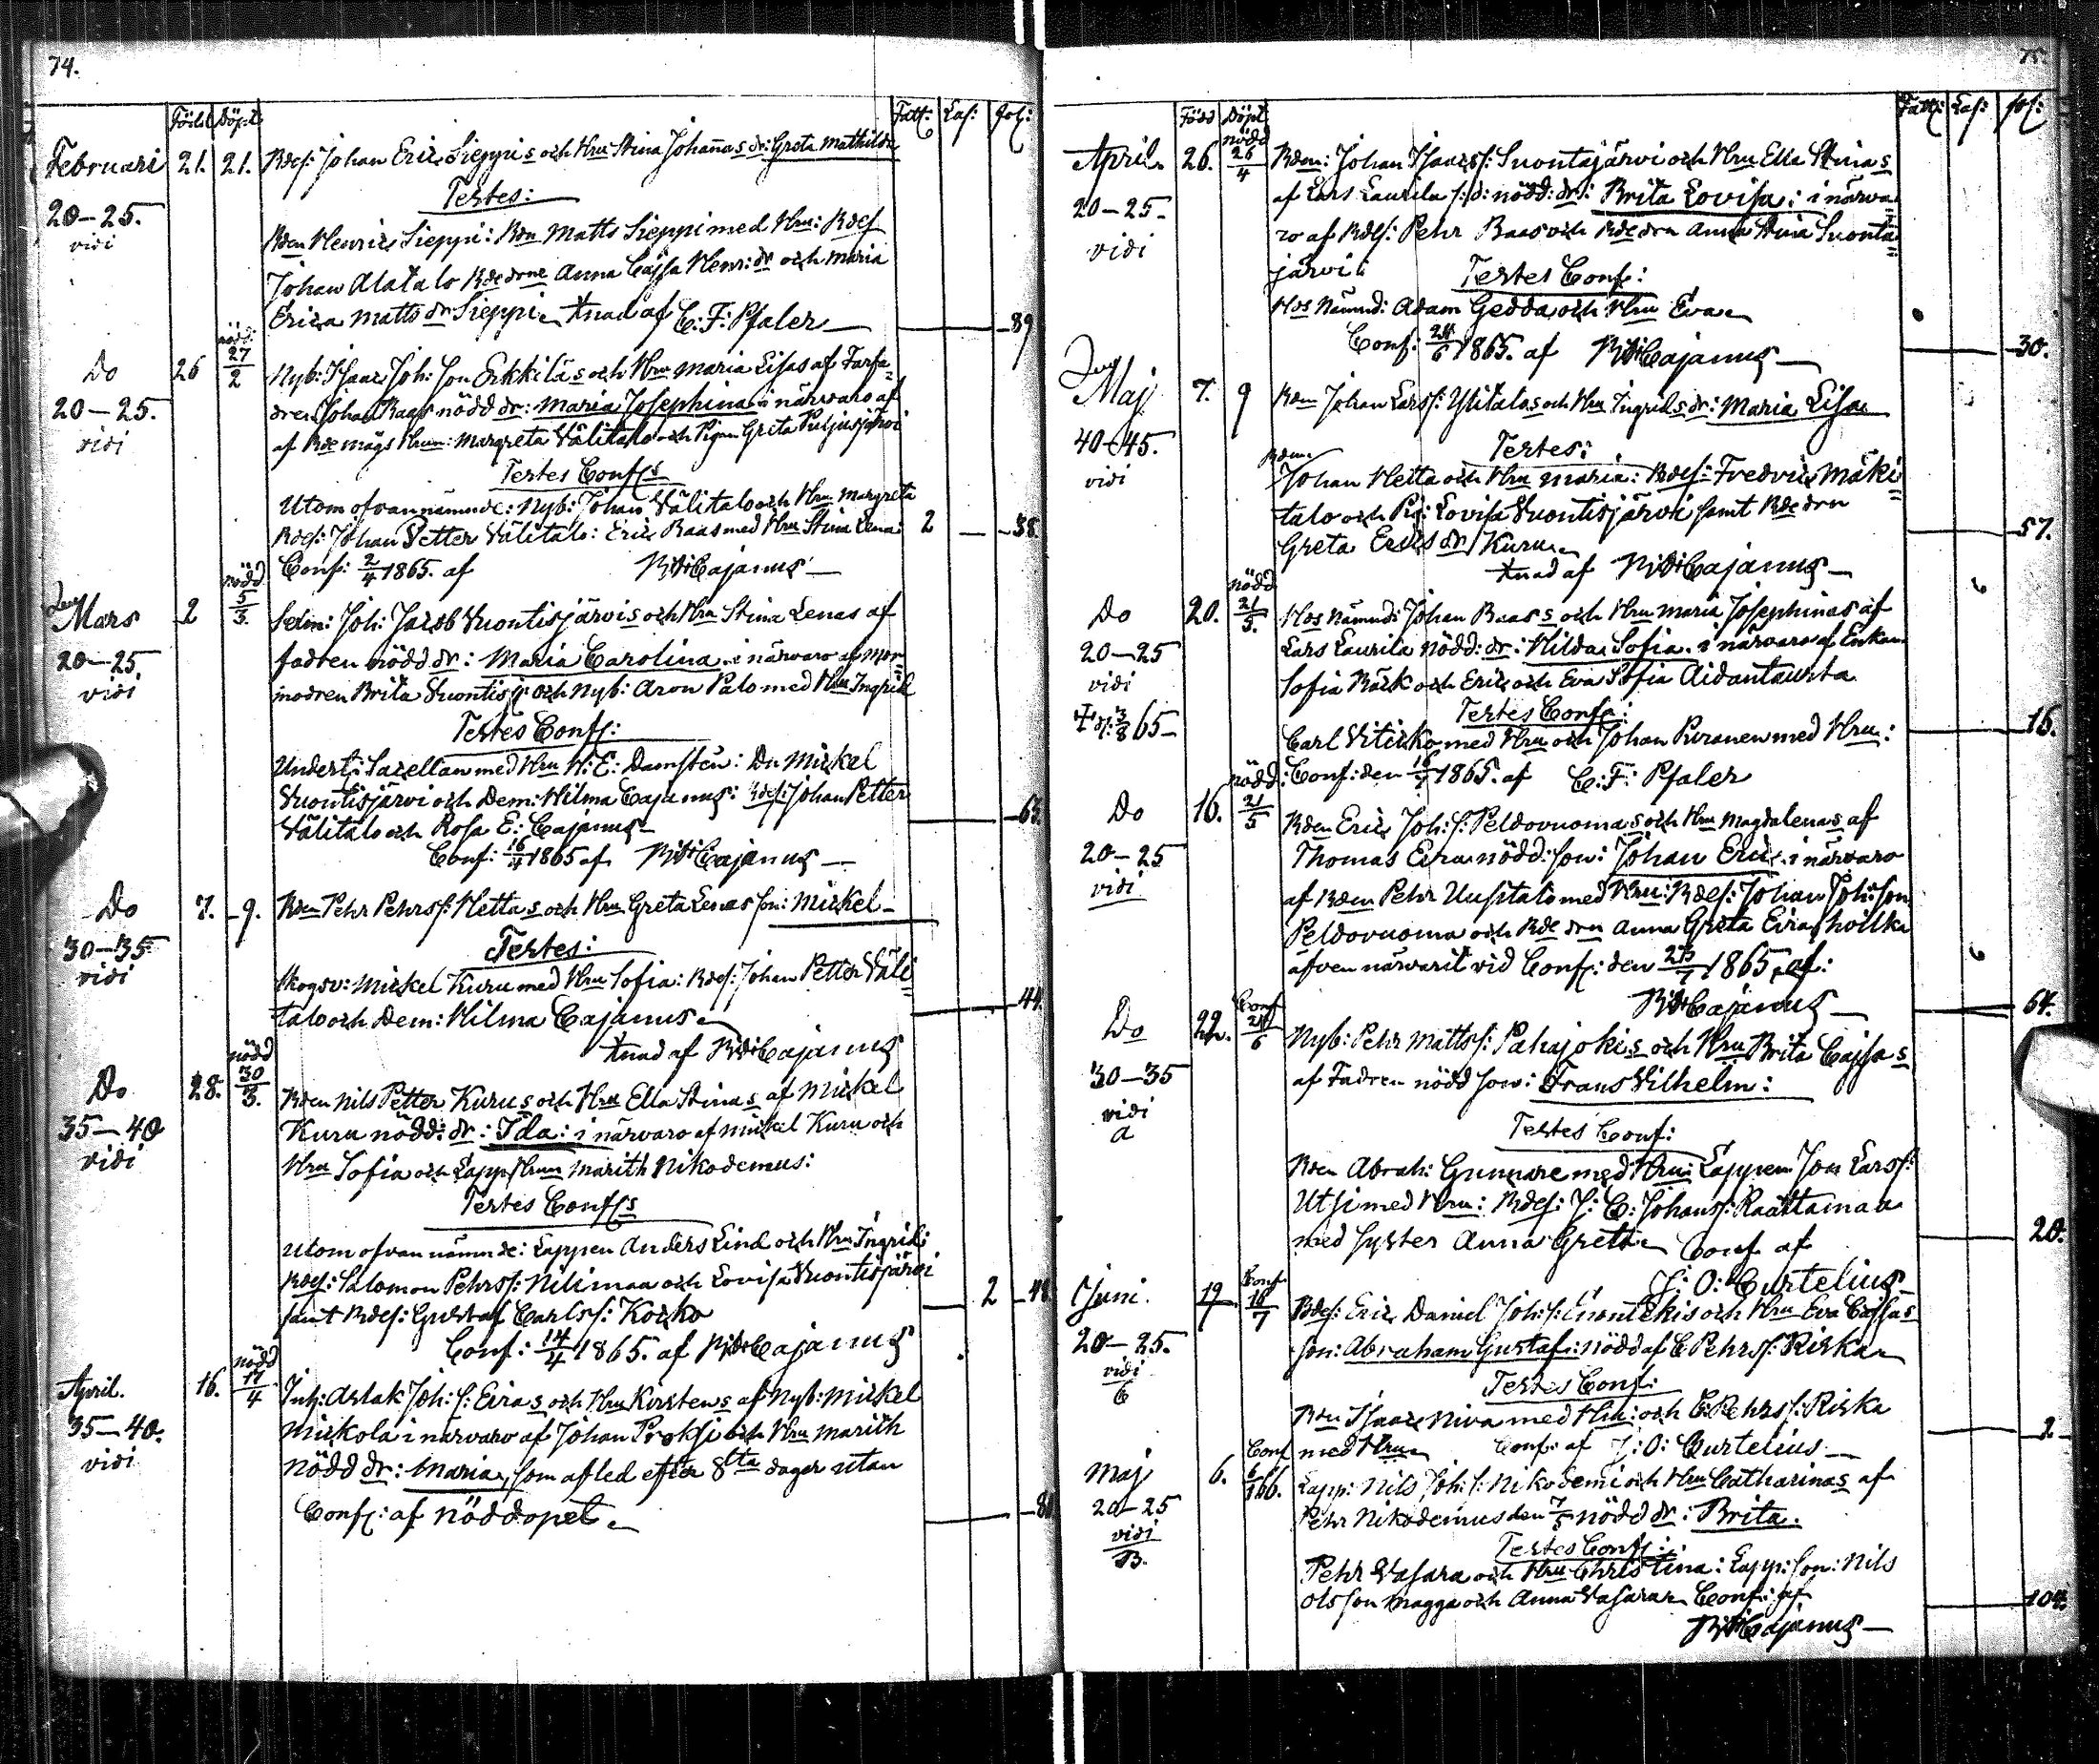 74.
Född Döpt Fatt: Lap: Fol:
Februari 21. 21. Rdes: Johan Eric Sieppis och Hru Stina Johannas dr: Greta Mathilda
Testes:
20-25.
vidi
Rden Henric Sieppi: Rdn Matts Sieppi med Hru: Rdes
Johan Alatalo Rdedrne Anna Cajsa Henr: dr och Maria
Erica Matts dr Sieppi. Knad af C: F: Pfaler 89
Do 26 nödd: 27/2 Nyb: Isaac Joh: Son Erkkiläs och Hru Maria Lisas af Farfa-
20-25. dren Johan Raas nödd dr: Maria Josephina i närvaro af
vidi af Rde mågs Hrun: Margreta Välitalo och Pigan Greta Puljusjärvi
Testes Conf:s
Utom ofvannämnde: Nyb: Johan Välitalo och Hru Margreta
Rdes: Johan Petter Välitalo: Eric Raas med Hru Stina Lena: 2 38.
Conf: 2/4 1865. af Cajanus
Mars 2 nödd 5/3. Johan Jacob Vuontisjärvis och Hru Stina Lenas af
20-25 fadren nödd dr: Maria Carolina i närvaro af Mor-
vidi modren Brita Vuontisj: och Nyb: Aron Palo med Hru Ingrid
Testes Conf:
Undert: Sacellan med Hru H: E: Damstén: Dn Mickel
Vuontisjärvi och Dem: Hilma Cajanus: Rdes: Johan Petter
Välitalo och Rosa E: Cajanus 63.
Conf: 16/4 1865 af Cajanus
Do 7. 9. Rden Pehr Pehrss: Hettas och Hru Greta Lenas son: Mickel
30-35
vidi
Testes:
Skogsv: Mickel Kuru med Hru Sofia: Rdes: Johan Petter Väli-
talo och Dem: Hilma Cajanus 44.
Knad af Cajanus
Do 28. nödd 30/3. Rden Nils Petter Kurus och Hru Ella Stinas af Mickel
35-40 Kuru nödd: dr: Ida: i närvaro af Mickel Kuru och
vidi Hru Sofia och Lapp Hrun Marith Nikodemus:
Testes Conf:s
Utom ofvannämnde: Lappen Anders Lind och Hru Ingrid:
Rdes: Salomon Pehrss: Nilimaa och Lovisa Vuontisjärvi
samt Rdes: Gustaf Carlss: Kocko 2 48
Conf: 14/4 1865. af Cajanus
April. 16. nödd 17/4 Inh: Aslak Joh: s: Eiras och Hru Kirstens af Nyb: Mickel
35-40. Mickola i närvaro af Johan Proksi och Hru Marith
vidi nödd dr: Maria, som afled efter 8ta dagar utan
Conf: af nöddopet.
75.
Född Döpt Fatt: Lap: Fol:
April. 26. nödd 26/4 Rdn: Johan Isaacss: Suontajärvi och Hru Ella Stinas
20-25. af Lars Laurila nödd: dr: Brita Lovisa: i närva-
vidi ro af Rdes: Pehr Raas och Rdedrn Anna Stina Suonta-
järvi:
Testes Conf:
Hos Nämnd: Adam Gedda och Hru Eva
Conf: 24/6 1865. af Cajanus 30.
Maj 7. 9 Rdn Johan Larss: Ylitalos och Hru Ingrids dr: Maria Lisa
40-45.
vidi
Testes:
Rden Johan Hetta och Hru Maria: Rdes: Fredric Mäki-
talo och Pig: Lovisa Vuontisjärvi samt Rdedrn
Greta Erics dr Kuru 57.
Knad af Cajanus
Do 20. nödd 21/5. Hos Nämnd: Johan Raass och Hru Maria Josephinas af
20-25 Lars Laurila nödd: dr: Hilda Sofia. i närvaro af Enkan
vidi Sofia Bäck och Eric och Eva Sofia Aidantausta
Testes Conf:
3/8 65 Carl Vitikko med Hru och Johan Puranen med Hru: 16.
Conf: den 1865. af C: F: Pfaler
Do 16. nödd: 21/5 Rden Eric Joh: s: Peldovuomas och Hru Magdalenas af
20-25 Thomas Eira nödd: son: Johan Eric: i närvaro
vidi af Rden Pehr Uusitalo med Hru: Rdes: Johan Joh: son
Peldovuoma och Rdedrn Anna Greta Eira, hvilka
äfven närvarit vid Conf: den 1865, af:
Cajanus 64.
Do 22. Conf 24/6 Nyb: Pehr Mattss: Pahajokis och Hru Brita Cajsas
30-35 af Fadren nödd son: Frans Vilhelm:
vidi
a
Testes Conf:
Rden Abrah: Gunnare med Hru: Lappen Jon Larss:
Utsi med Hru: Rdes: J: C: Johanss: Raattamaa
med syster Anna Greta Conf af 20.
J: O: Curtelius
Juni. 19 Conf. 10/7 Rdes: Eric Daniel Joh: s: Enontekis och Hru Eva Cajsas
20-25. son: Abraham Gustaf: nödd af E Pehrss: Riska
vidi
Testes Conf:
Rdn Isaac Niva med Hru: och E: Pehrss: Riska
med Hru Conf: af J: O: Curtelius
Maj 6. Conf Lapp: Nils Joh: s: Nikodemi och Hru Catharinas af
20-25 Pehr Nikodemus den 7/5 nödd dr: Brita.
vidi
B.
Testes Conf:
Pehr Vasara och Hru Christina: Lapp: son: Nils
Olsson Magga och Anna Vasara Conf: af 104.
Cajanus